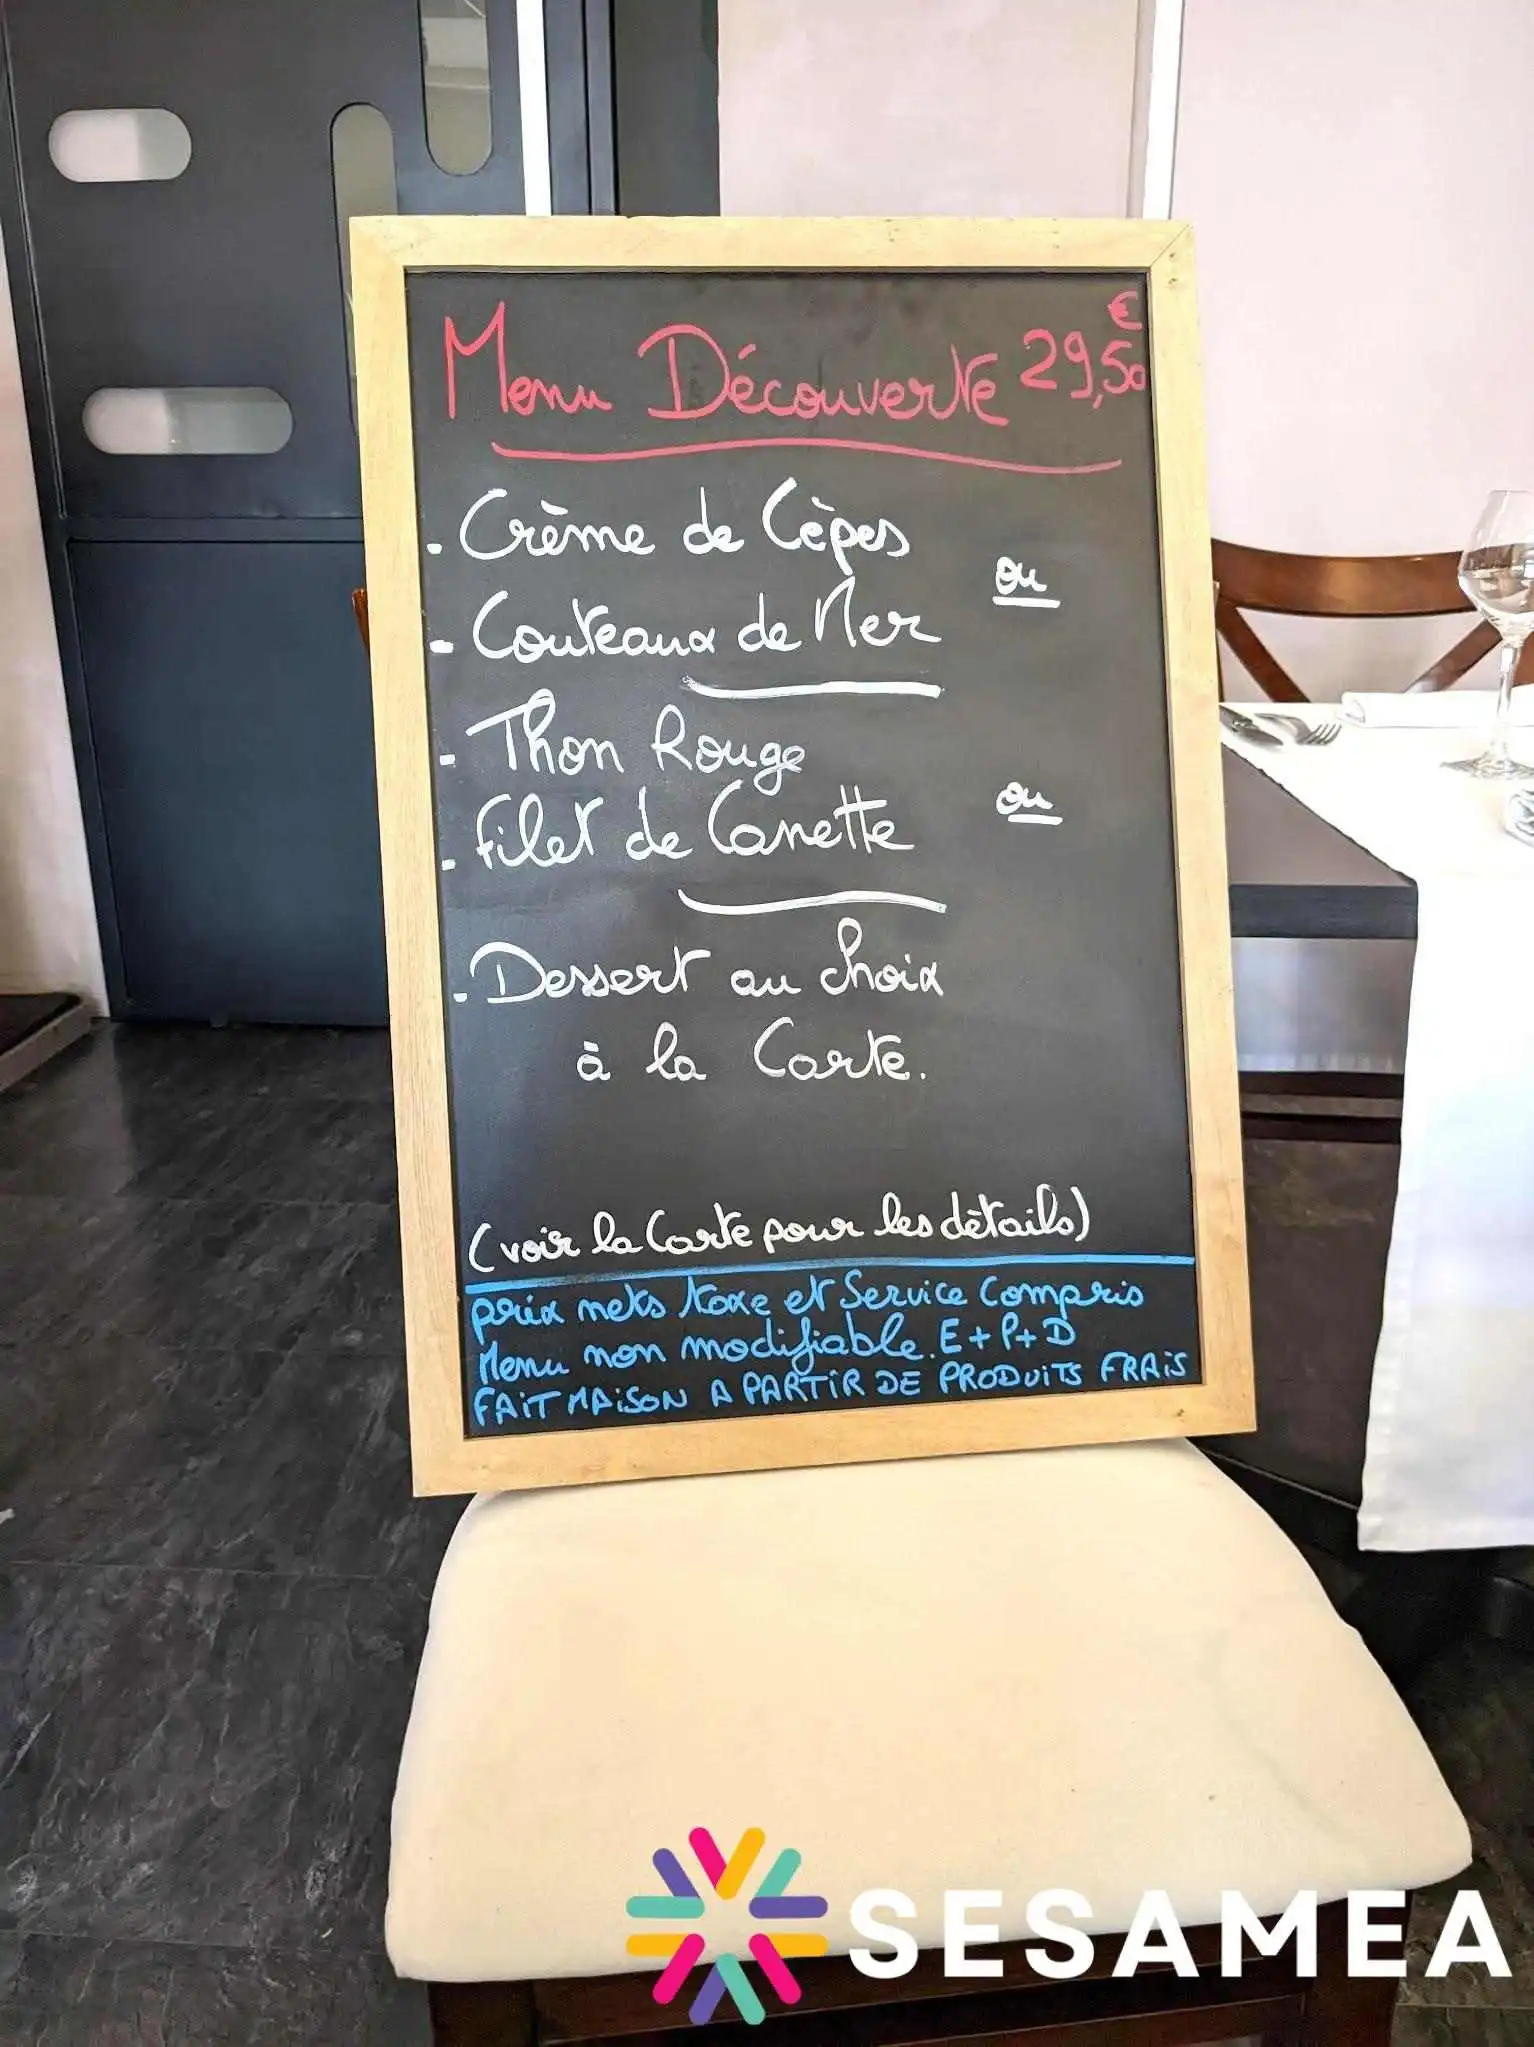 Menu Découverte 29,50 €
- Crème de Cèpes
ou
- Couteaux de Mer
- Thon Rouge
ou
- Filet de Canette
- Dessert au choix
à la Carte.
(voir la Carte pour les détails)
prix nets taxe et Service Compris
Menu non modifiable. E + P + D
FAIT MAISON A PARTIR DE PRODUITS FRAIS
SESAMEA